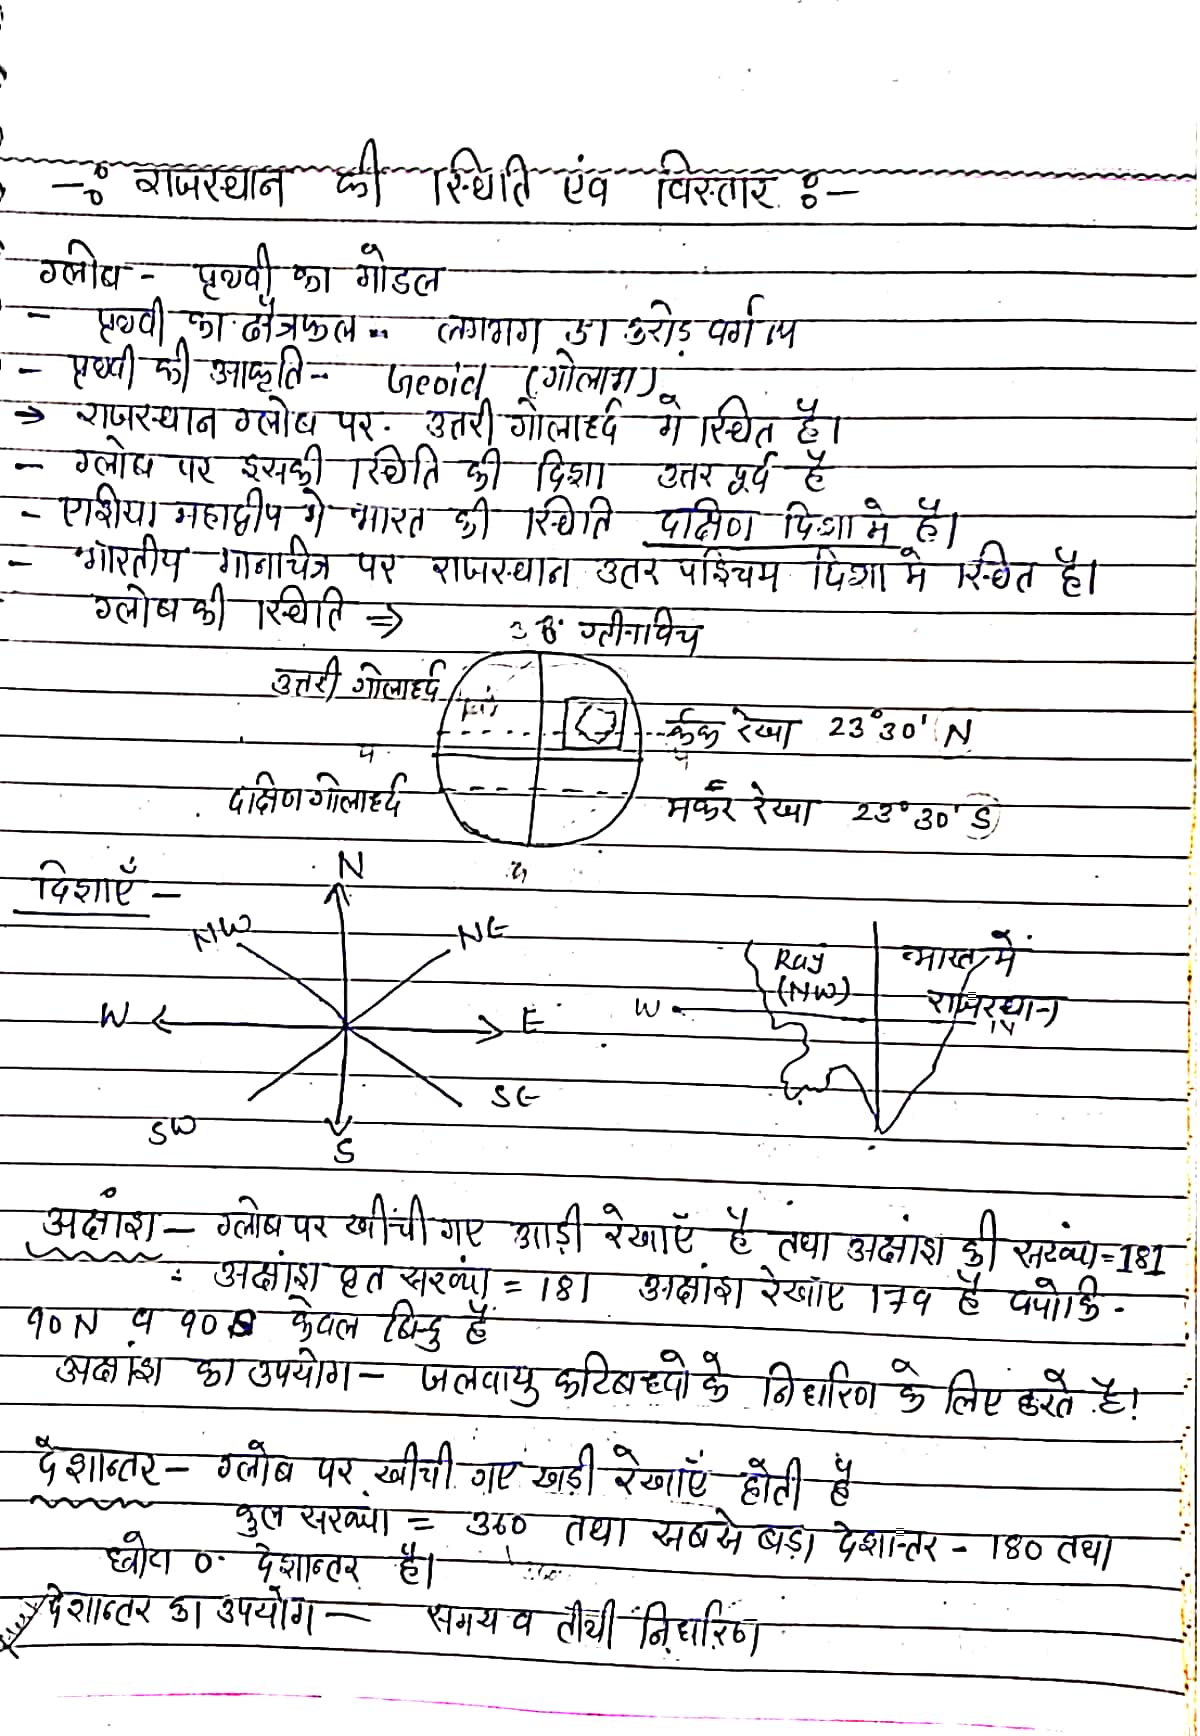 -: राजस्थान की स्थिति एंव विस्तार :-
ग्लोब - पृथ्वी का मॉडल
- पृथ्वी का क्षैत्रफल - लगभग 51 करोड़ वर्ग
- पृथ्वी की आकृति - Geoid (गोलाभ)
→ राजस्थान ग्लोब पर उतरी गोलार्द्द मे स्थित है।
- ग्लोब पर इसकी स्थिति की दिशा उत्तर पूर्व है
- एशिया महाद्वीप मे भारत की स्थिति दक्षिण दिशा मे है।
- भारतीय मानचित्र पर राजस्थान उतर पश्चिम दिशा मे स्थित है।
ग्लोब की स्थिति ⇒
उत्तरी गोलार्द्द
कर्क रेखा 23°30' N
दक्षिण गोलार्द्द
मकर रेखा 23°30' S
दिशाएँ -
N
NW NE
W E
SW SE
S
Raj (NW)
भारत में
W
राजस्थान
अक्षांश - ग्लोब पर खींची गए आड़ी रेखाएँ है तथा अक्षांश की सख्या = 181
: अक्षांश वृत सख्या = 181 अक्षांश रेखाए 179 है क्योकि -
90 N व 90 S केवल बिन्दु है
अक्षांश का उपयोग - जलवायु कटिबन्धो के निर्धारण के लिए करते है।
देशान्तर - ग्लोब पर खीची गए खड़ी रेखाएँ होती है
कुल सख्या = 360 तथा सबसे बड़ा देशान्तर - 180 तथा
छोटा 0° देशान्तर है।
देशान्तर का उपयोग - समय व तीथी निर्धारण